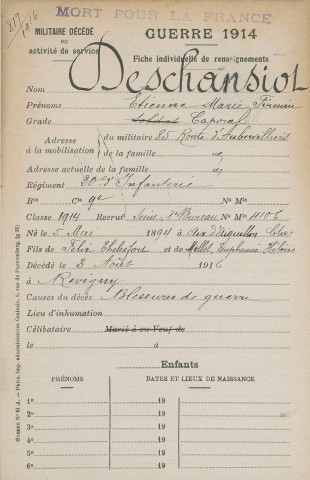 817/1916
MORT POUR LA FRANCE
MILITAIRE DÉCÉDÉ
en
activité de service
GUERRE 1914
Fiche individuelle de renseignements
Nom Deschansiot
Prénoms Etienne Marie Firmin
Grade Soldat Caporal
Adresse à la mobilisation
du militaire 85 Route d'Aubervilliers
de la famille
Adresse actuelle de la famille
Régiment 20e d'Infanterie
Bon Cie 9e No Mle
Classe 1914 Recrut Seine No Mle 4106
Né le 5 Mai 1894 à Cher
Fils de et de Mellet, Euphémie
Décédé le 3 Août 1916
à Revigny
Causes du décès Blessures de guerre
Lieu d'inhumation
Célibataire Marié à ou Veuf de
le à
Enfants
PRÉNOMS DATES ET LIEUX DE NAISSANCE
1o 19
2o 19
3o 19
4o 19
5o 19
6o 19